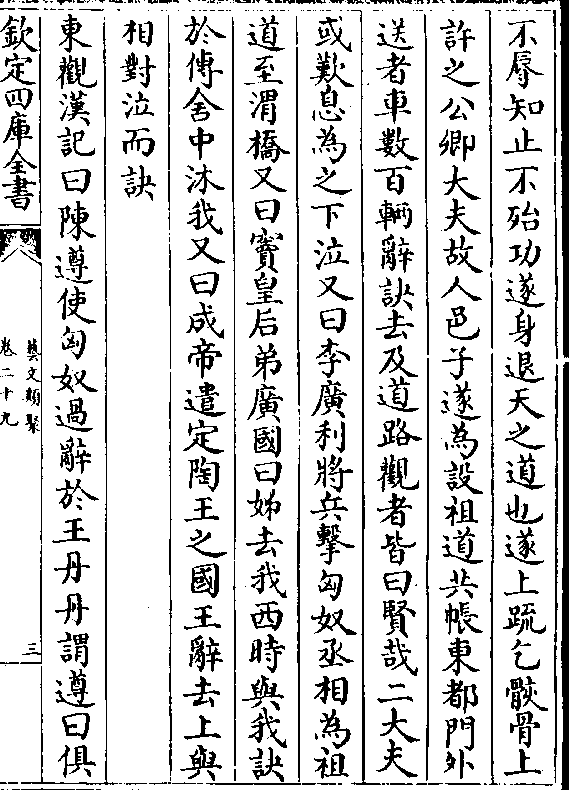 不辱知止不殆功遂身退天之道也遂上疏乞骸骨上
許之公卿大夫故人邑子遂為設祖道共帳東都門外
送者車數百輌辭訣去及道路觀者皆曰賢哉二大夫
或歎息為之下泣又曰李廣利將兵擊匈奴丞相為祖
道至渭橋又曰竇皇后弟廣國曰姊去我西時與我訣
於傳舍中沐我又曰成帝遣定陶王之國王辭去上與
相對泣而訣
東觀漢記曰陳遵使匈奴過辭於王丹丹謂遵曰俱
欽定四庫全書
藝文類聚
卷二十九
三